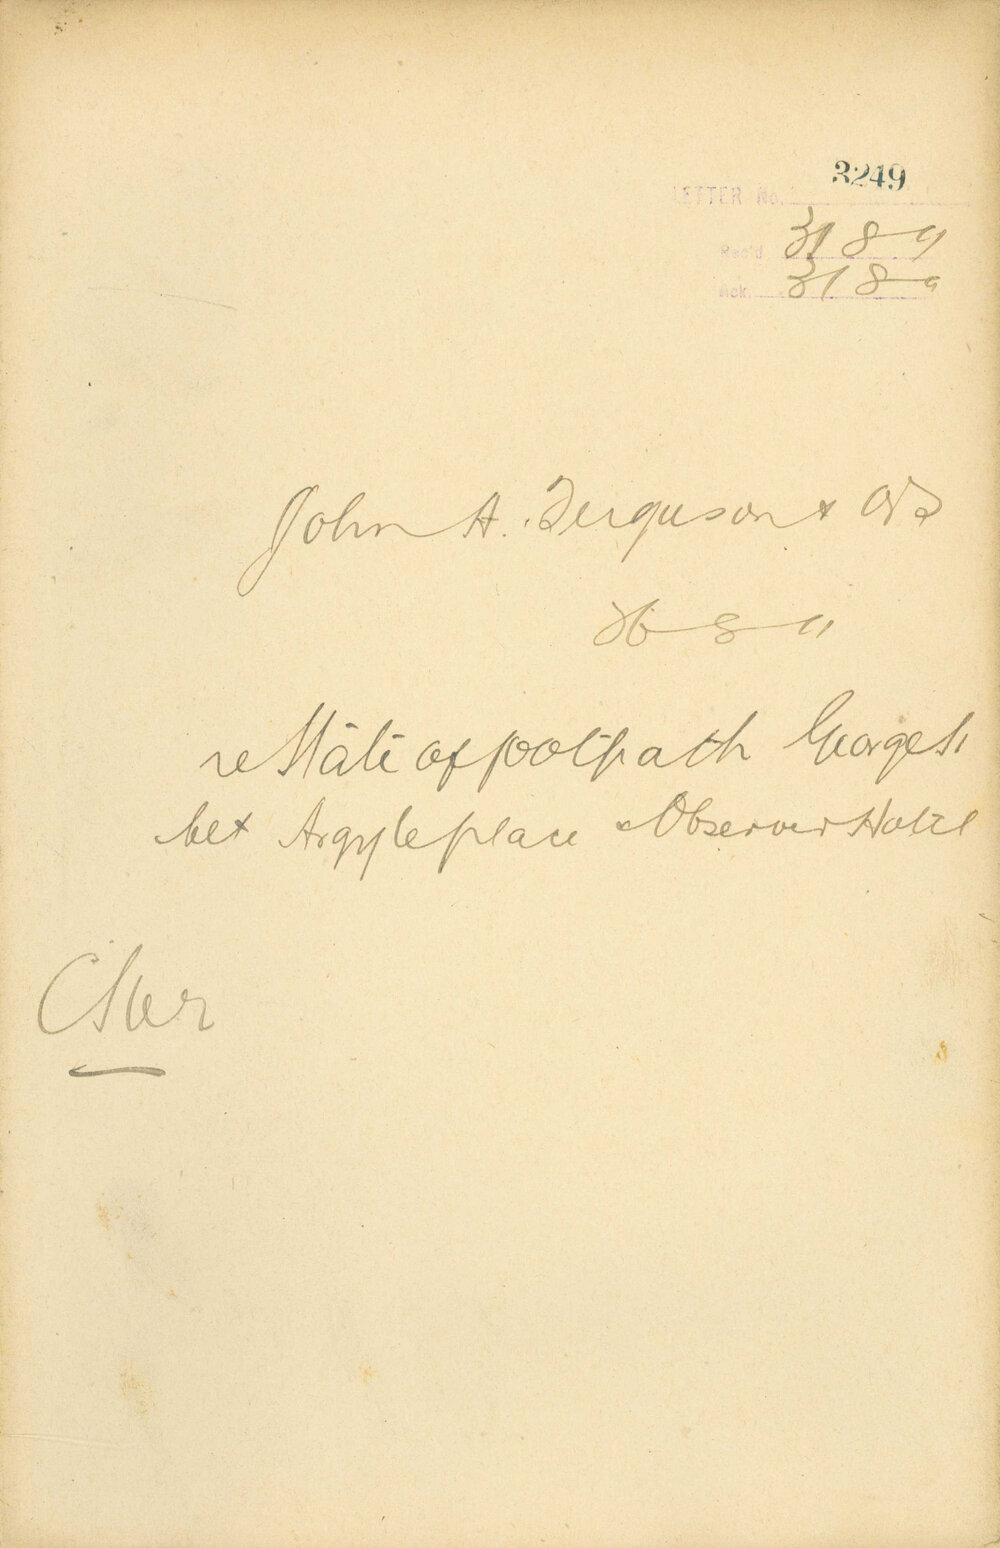 3249
LETTER No.
Rec'd 31 8
Ack. 31 8
John A. Ferguson & Ors
26 8
re State of footpath George St
bet Argyle place & Observer Hotel